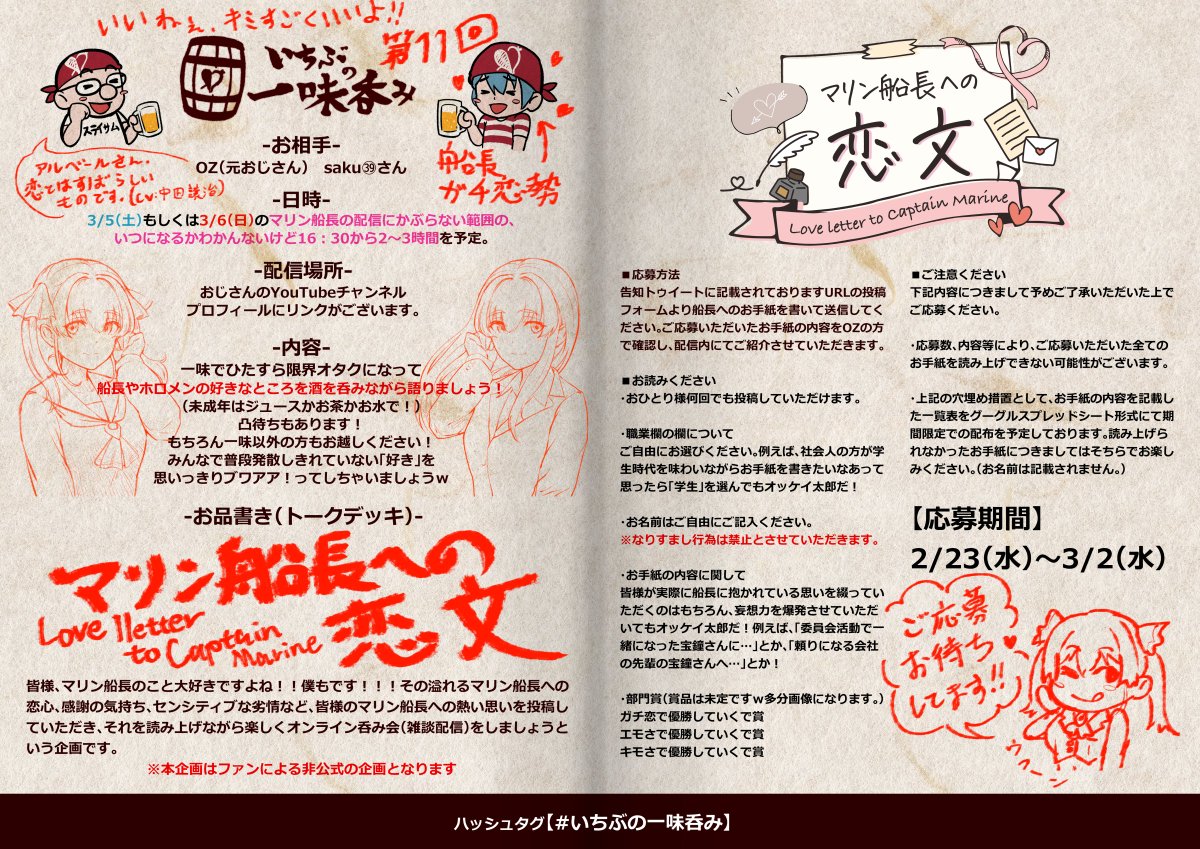 いいねぇ、キミすごくいいよ!!
いちぶの
一味呑み
第11回
スライサム
アルベールさん、
恋とはすばらしい
ものです。(cv:中田譲治)
船長
ガチ恋勢
-お相手-
OZ(元おじさん) saku㊴さん
-日時-
3/5(土)もしくは3/6(日)のマリン船長の配信にかぶらない範囲の、
いつになるかわかんないけど16：30から2～3時間を予定。
-配信場所-
おじさんのYouTubeチャンネル
プロフィールにリンクがございます。
-内容-
一味でひたすら限界オタクになって
船長やホロメンの好きなところを酒を呑みながら語りましょう！
(未成年はジュースかお茶かお水で！)
凸待ちもあります！
もちろん一味以外の方もお越しください！
みんなで普段発散しきれていない「好き」を
思いっきりブワアア！ってしちゃいましょうw
-お品書き(トークデッキ)-
マリン船長への
恋文
Love lletter
to Captain
Marine
皆様、マリン船長のこと大好きですよね！！僕もです！！！その溢れるマリン船長への
恋心、感謝の気持ち、センシティブな劣情など、皆様のマリン船長への熱い思いを投稿し
ていただき、それを読み上げながら楽しくオンライン呑み会(雑談配信)をしましょうと
いう企画です。
※本企画はファンによる非公式の企画となります
マリン船長への
恋文
Love letter to Captain Marine
■応募方法
告知トゥイートに記載されておりますURLの投稿
フォームより船長へのお手紙を書いて送信してく
ださい。ご応募いただいたお手紙の内容をOZの方
で確認し、配信内にてご紹介させていただきます。
■お読みください
・おひとり様何回でも投稿していただけます。
・職業欄の欄について
ご自由にお選びください。例えば、社会人の方が学
生時代を味わいながらお手紙を書きたいなあって
思ったら「学生」を選んでもオッケイ太郎だ！
・お名前はご自由にご記入ください。
※なりすまし行為は禁止とさせていただきます。
・お手紙の内容に関して
皆様が実際に船長に抱かれている思いを綴ってい
ただくのはもちろん、妄想力を爆発させていただ
いてもオッケイ太郎だ！例えば、「委員会活動で一
緒になった宝鐘さんに…」とか、「頼りになる会社
の先輩の宝鐘さんへ…」とか！
・部門賞(賞品は未定ですw多分画像になります。)
ガチ恋で優勝していくで賞
エモさで優勝していくで賞
キモさで優勝していくで賞
■ご注意ください
下記内容につきまして予めご了承いただいた上で
ご応募ください。
・応募数、内容等により、ご応募いただいた全ての
お手紙を読み上げできない可能性がございます。
・上記の穴埋め措置として、お手紙の内容を記載し
た一覧表をグーグルスプレッドシート形式にて期
間限定での配布を予定しております。読み上げら
れなかったお手紙につきましてはそちらでお楽し
みください。(お名前は記載されません。)
【応募期間】
2/23(水)～3/2(水)
ご応募
お待ち
してます!!
ウフーン
ハッシュタグ【#いちぶの一味呑み】